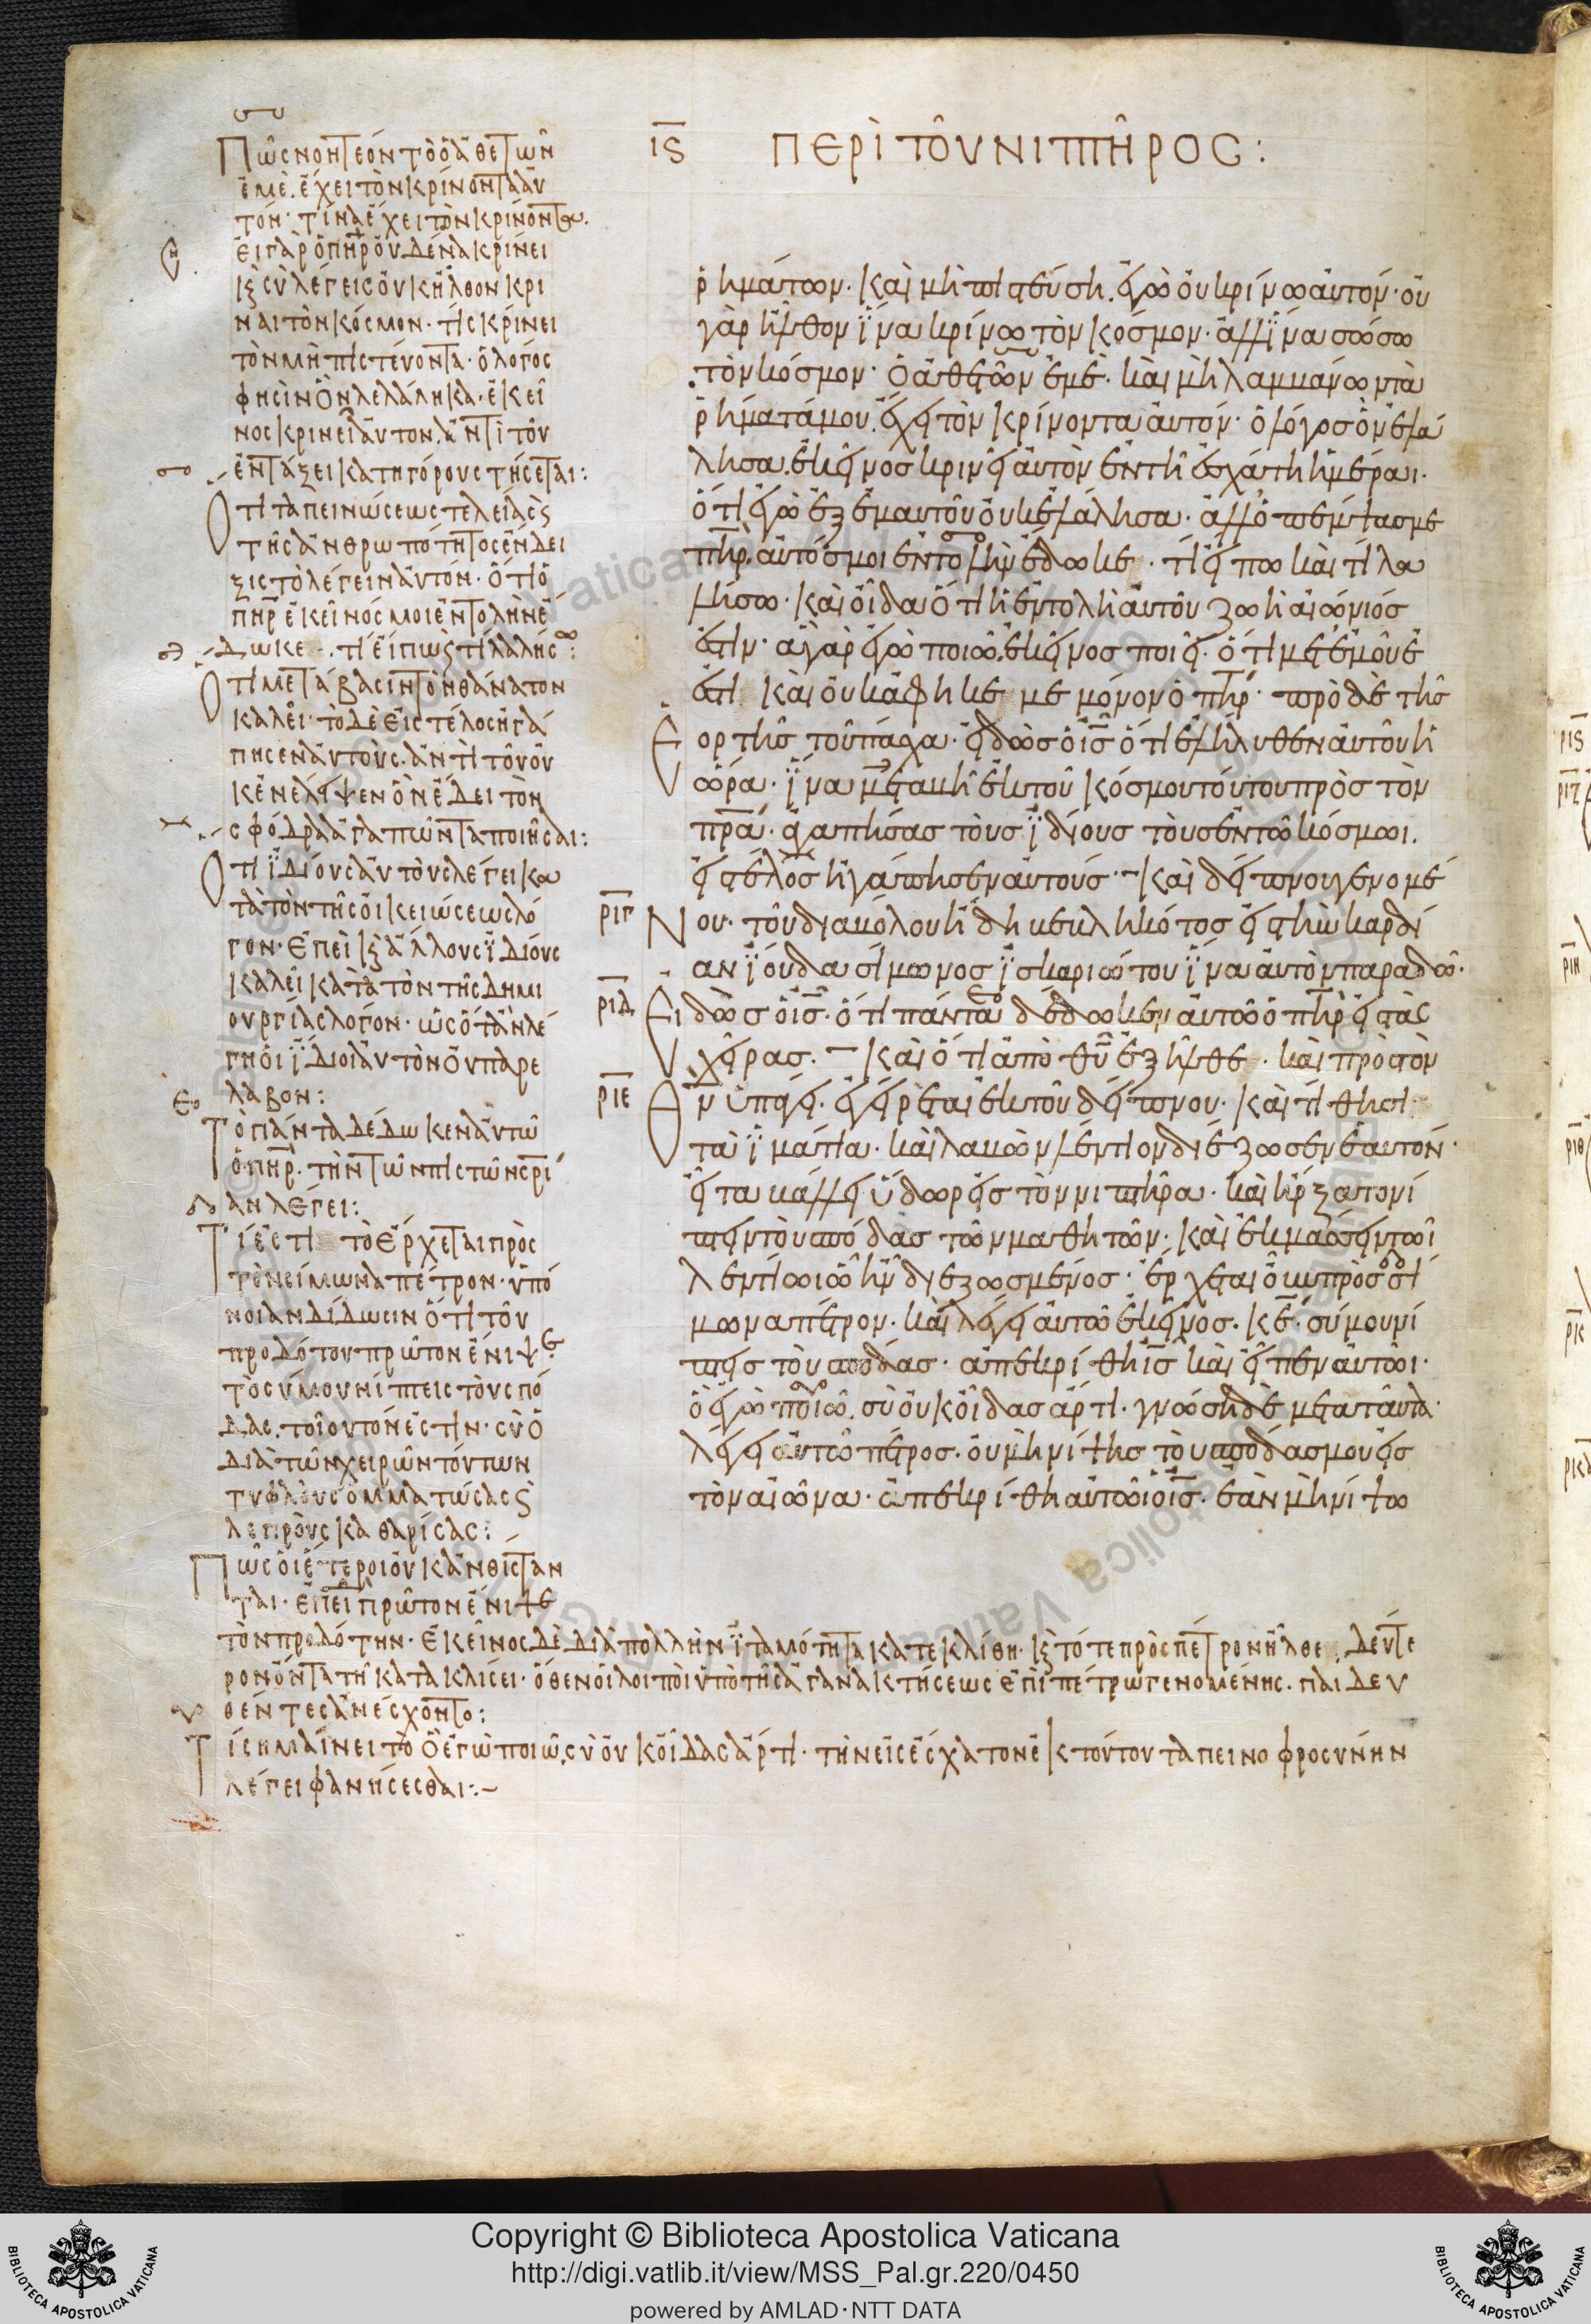 ις ΠΕΡΙ ΤΟΥ ΝΙΠΤΗΡΟΣ:
Πῶς νοητέον τὸ ὁ ἀθετῶν
ἐμὲ. ἔχει τὸν κρίνοντα αὐ
τόν· τίνα ἔχει τὸν κρίνοντα.
εἰ γὰρ ὁ πηρ οὐδένα κρίνει
κ σὺ λέγεις οὐκ ἦλθον κρῖ
ναι τὸν κόσμον· τίς κρίνει
τὸν μὴ πιστεύοντα· ὁ λόγος
φησὶν ὃν λελάληκα· ἐκεῖ
νος κρινεῖ αὐτον ἀντὶ τοῦ
ἐν τάξει κατηγόρου στήσεται:
Ὅτι ταπεινώσεως τελείας
τῆς ἀνθρωπότητος ἔνδει
ξις τὸ λέγειν αὐτόν· ὅτι ὁ
πηρ ἐκεῖνός μοι ἐντολὴν ἔ
δωκε τί εἴπω ς τί λαλήσω:
Ὅτι μετάβασιν τὸν θάνατον
καλεῖ· τὸ δὲ εἰς τέλος ἠγά
πησεν αὐτοὺς. ἀντὶ τοῦ οὐ
κ ἐνέλειψεν ὃν ἔδει τὸν
σφόδρα ἀγαπῶντα ποιῆσαι:
Ὅτι ἰδίους αὐτοὺς λέγει κα
τὰ τὸν τῆς οἰκειώσεως λό
γον· ἐπεὶ κ ἄλλους ἰδίους
καλεῖ κατὰ τὸν τῆς δημι
ουργίας λόγον· ὡς ὅταν λέ
γη οἱ ἴδιοι αὐτὸν οὐ παρέ
λαβον:
Τὸ πάντα δέδωκεν αὐτῷ
ὁ πηρ. τὴν τῶν πιστῶν σρί
αν λέγει:
Τί ἐστι τὸ ἔρχεται πρὸς
τὸν σίμωνα πέτρον· ὑπό
νοιαν δίδωσιν ὅτι τοῦ
προδότου πρῶτον ἔνιψε
τὸ σύ μου νίπτεις τοὺς πό
δας. τοιοῦτόν ἐστιν· σὺ ὁ
διὰ τῶν χειρῶν τούτων
τυφλοὺς ὀμματώσας ς
λεπροὺς καθαρίσας:
Πῶς οἱ ἕτεροι οὐκ ἀνθίσταν
ται· ἐπεὶ πρῶτον ἔνιψε
τὸν προδότην· ἐκεῖνος δὲ διὰ πολλὴν ἰταμότητα κατεκλίθη· κ τότε πρὸς πέτρον ἦλθε. δεύτε
ρον ὄντα τῇ κατακλίσει· ὅθεν οἱ λοιποὶ ὑπὸ τῆς ἀγανακτήσεως ἐπὶ πέτρῳ γενομένης. παιδευ
θέντες ἀνέσχοντο:
Τί σημαίνει τὸ ὃ ἐγὼ ποιῶ, σὺ οὐκ οἶδας ἄρτι· τὴν εἰς ἔσχατον ἐκ τούτου ταπεινοφροσύνην
λέγει φανήσεσθαι:—
ῥημάτων· καὶ μὴ πιστεύση. ἐγὼ οὐ κρίνω αὐτόν· οὐ
γὰρ ἦλθον ἵνα κρίνω τὸν κόσμον· ἀλλ ἵνα σώσω
τὸν κόσμον· ὁ ἀθετῶν ἐμὲ· καὶ μὴ λαμβάνων τὰ
ῥήματά μου. ἔχει τὸν κρίνοντα αὐτόν· ὁ λόγος ὃν ἐλά
λησα. ἐκεῖνος κρινεῖ αὐτὸν ἐν τῆ ἐσχάτη ἡμέραι·
ὅτι ἐγὼ ἐξ ἐμαυτοῦ οὐκ ἐλάλησα· ἀλλ ὁ πέμψας με
πηρ. αὐτός μοι ἐντολὴν ἔδωκε· τί εἴπω καὶ τί λα
λήσω· καὶ οἶδα ὅτι ἡ ἐντολὴ αὐτοῦ ζωὴ αἰώνιός
ἐστιν· ἃ γὰρ ἐγὼ ποιῶ. ἐκεῖνος ποιεῖ· ὅτι μετ ἐμοῦ ἐ
στι καὶ οὐκ ἀφῆκε με μόνον ὁ πηρ· πρὸ δὲ τῆς
Εορτῆς τοῦ πάσχα· εἰδὼς ὁ ις ὅτι ἐλήλυθεν αὐτοῦ ἡ
ὥρα· ἵνα μεταβῆ ἐκ τοῦ κόσμου τούτου πρὸς τὸν
πρα· ἀγαπήσας τοὺς ἰδίους τοὺς ἐν τῶ κόσμωι.
εἰς τέλος ἠγάπησεν αὐτούς· καὶ δείπνου γενομέ
ριγ Νου· τοῦ διαβόλου ἤδη βεβληκότος εἰς τὴν καρδί
αν ἰούδα σίμωνος ἰσκαριώτου ἵνα αὐτὸν παραδῶ·
ριδ Ειδὼς ὁ ις· ὅτι πάντα δέδωκεν αὐτῶ ὁ πηρ εἰς τὰς
χεῖρας· καὶ ὅτι ἀπὸ θυ ἐξῆλθε· καὶ πρὸς τὸν
ριε Θν ὑπάγει· ἐγείρεται ἐκ τοῦ δείπνου· καὶ τίθησι
τὰ ἱμάτια· καὶ λαβὼν λέντιον διέζωσεν ἑαυτόν·
εἶτα βάλλει ὕδωρ εἰς τὸν νιπτῆρα· καὶ ἤρξατο νί
πτειν τοὺς πόδας τῶν μαθητῶν· καὶ ἐκμάσσειν τῶι
λεντίωι ὧ ἦν διεζωσμένος· ἔρχεται οὖν πρὸς σί
μωνα πέτρον· καὶ λέγει αὐτῶ ἐκεῖνος· κε· σύ μου νί
πτεις τοὺς πόδας· ἀπεκρίθη ις καὶ εἶπεν αὐτῶι·
ὃ ἐγὼ ποιῶ. σὺ οὐκ οἶδας ἄρτι· γνώση δὲ μετὰ ταῦτα·
λέγει αὐτῶ πέτρος· οὐ μὴ νίψης τοὺς πόδας μου εἰς
τὸν αἰῶνα· ἀπεκρίθη αὐτῶι ὁ ις· ἐὰν μὴ νίψω
ρις
ριζ
ριη
ριθ
ρκ
Copyright © Biblioteca Apostolica Vaticana
http://digi.vatlib.it/view/MSS_Pal.gr.220/0450
powered by AMLAD·NTT DATA
BIBLIOTECA APOSTOLICA VATICANA
BIBLIOTECA APOSTOLICA VATICANA